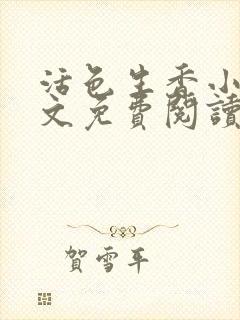 活色生香小
文免費閱讀
賀雪平